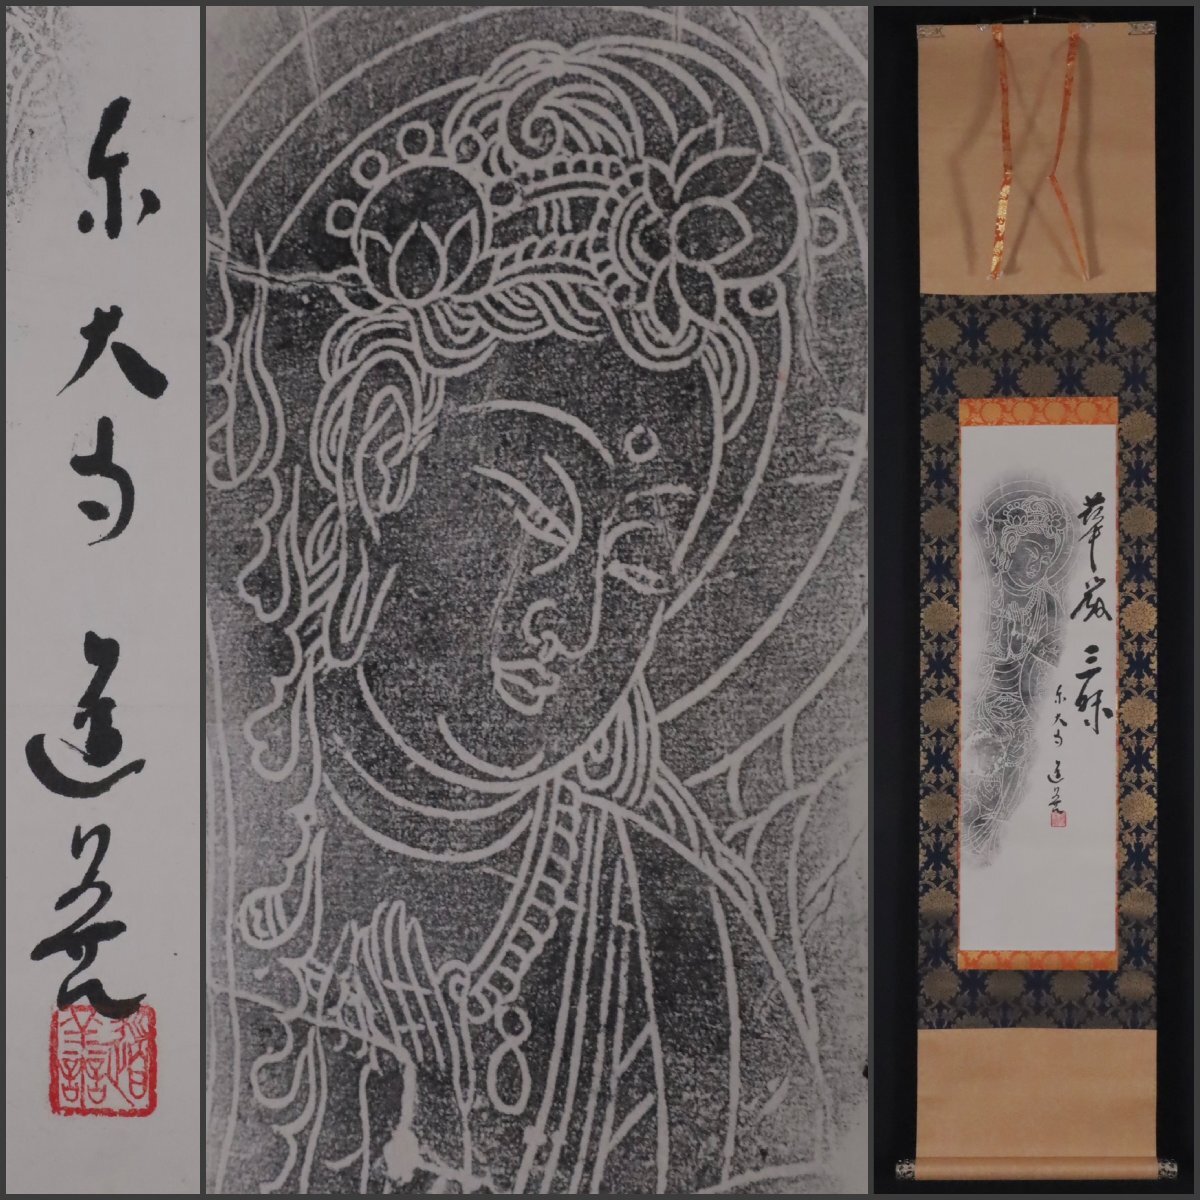 東大寺 道善
道譱
華厳三昧
東大寺 道善